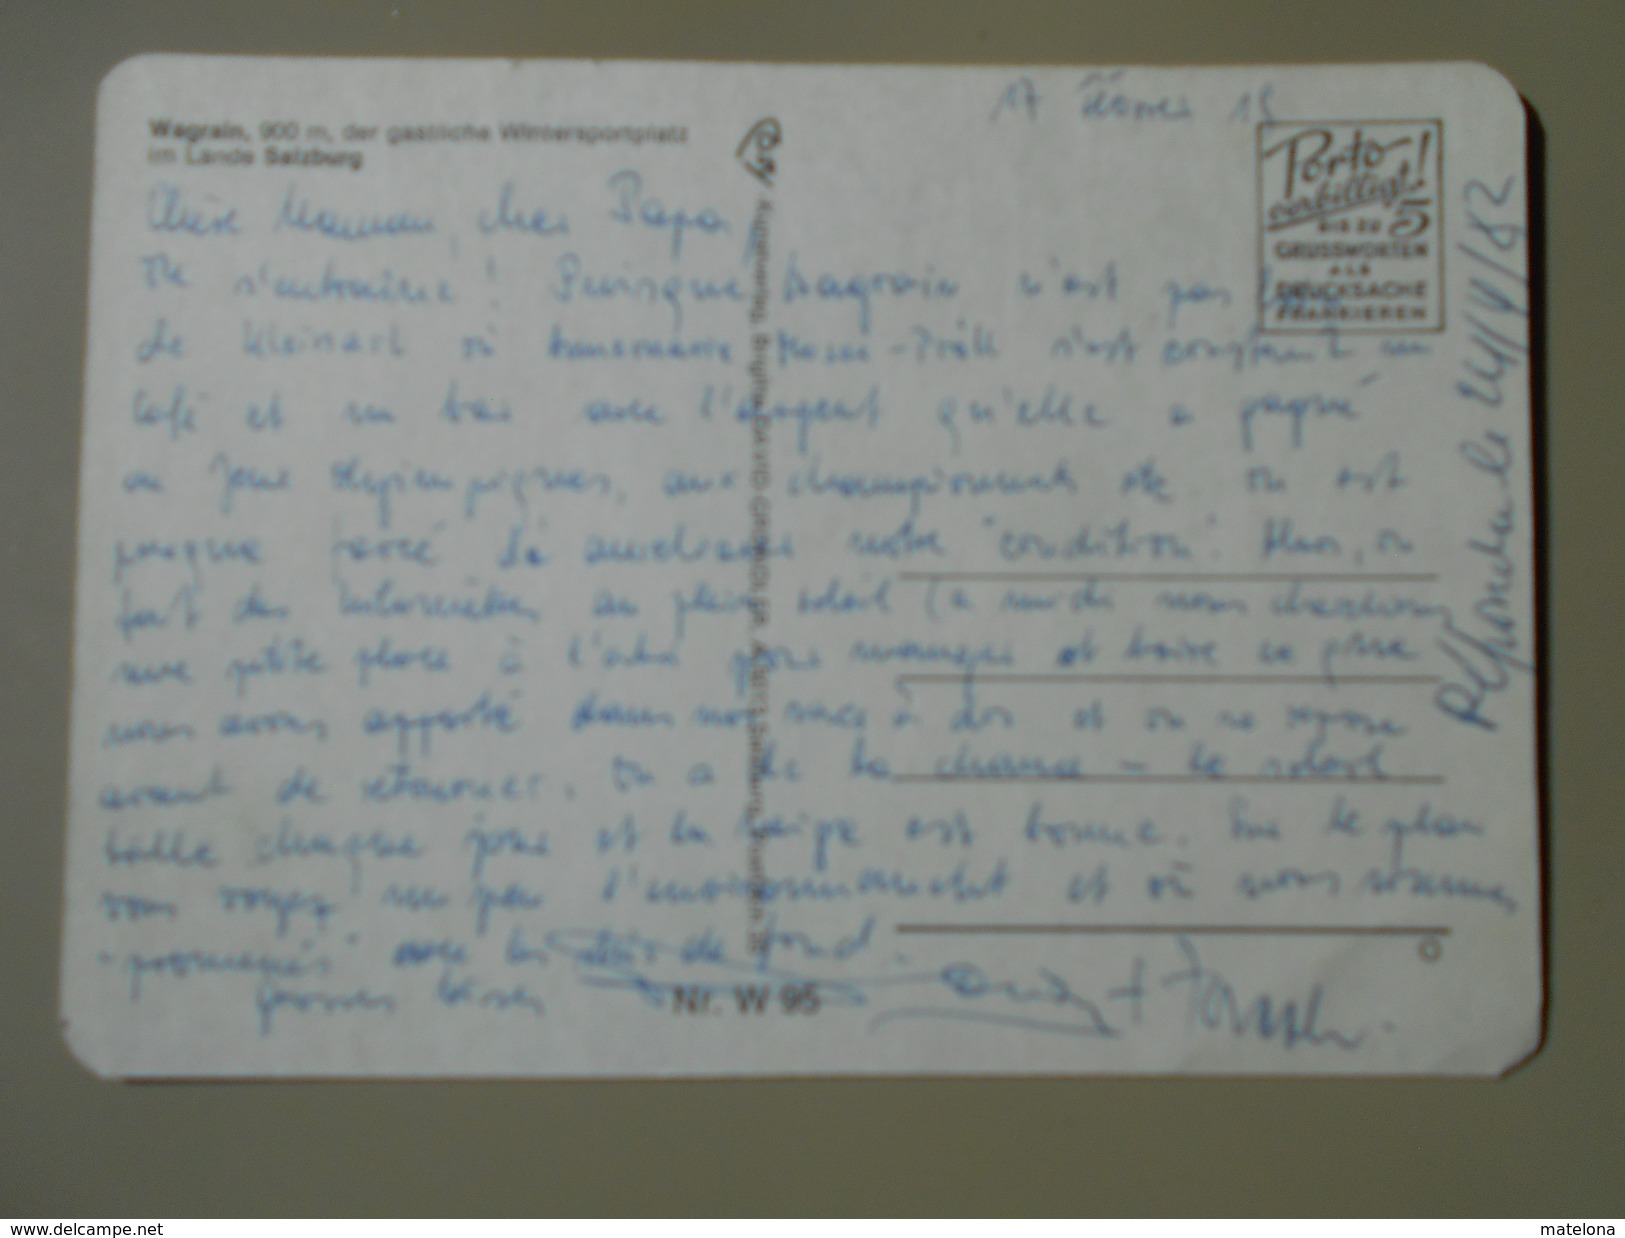 17 19
Wagrain, 900 m, der gastliche Wintersportplatz
im Lande Salzburg
Porto
verbilligt!
BIS ZU 5
GRUSSWORTEN
ALS
DRUCKSACHE
FRANKIEREN
Chère Maman, cher Papa,
On s'entraîne ! Puisque Wagrain n'est pas loin
de Kleinarl où Annemarie Moser-Pröll s'est construit un
café et un bar avec l'argent qu'elle a gagné
au Jeux Olympiques, aux championnats etc. on est
presque forcé d'améliorer notre "condition". Alors, on
fait des kilomètres au plein soleil (à midi nous cherchons
une petite place à l'abri pour manger et boire ce que
nous avons apporté dans nos sacs à dos et on se repose
avant de retourner. On a de la chance - le soleil
brille chaque jour et la neige est bonne. Sur le plan
vous voyez un peu l'environnement et où nous sommes
"promenés" avec les skis de fond.
grosses bises
Répondu le 24/4/82
Nr. W 95